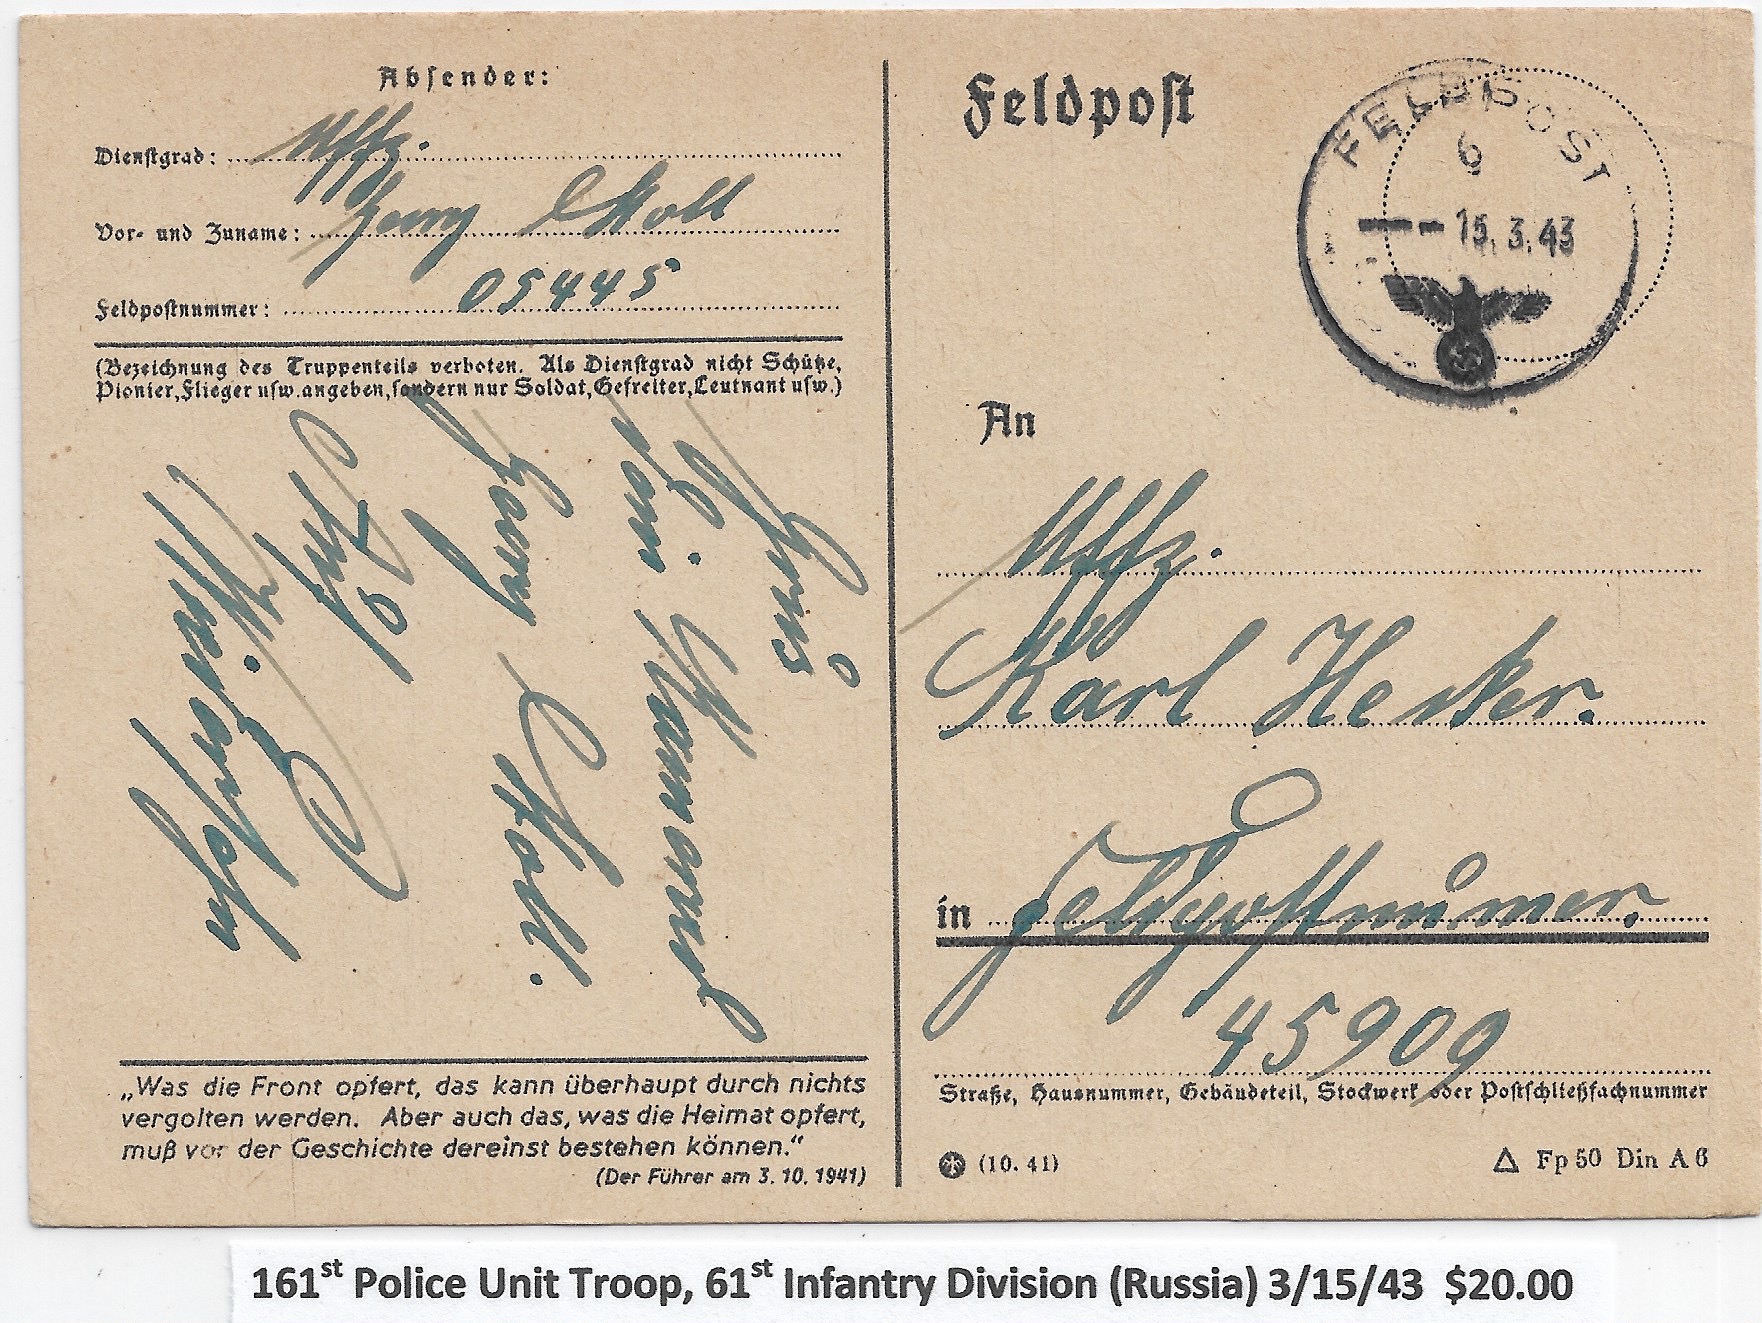 Absender:
Dienstgrad: Uffz.
Vor- und Zuname: Georg Moll
Feldpostnummer: 05445
(Bezeichnung des Truppenteils verboten. Als Dienstgrad nicht Schütze,
Pionier, Flieger usw. angeben, sondern nur Soldat, Gefreiter, Leutnant usw.)
Dein Kamerad
Georg Moll.
Auf
Wiedersehn
„Was die Front opfert, das kann überhaupt durch nichts
vergolten werden. Aber auch das, was die Heimat opfert,
muß vor der Geschichte dereinst bestehen können.“
(Der Führer am 3. 10. 1941)
Feldpost
FELDPOST
6
15.3.43
An
Uffz.
Karl Hecker.
in Feldpostnummer.
45909
Straße, Hausnummer, Gebäudeteil, Stockwerk oder Postschließfachnummer
(10. 41)
Fp 50 Din A 6
161st Police Unit Troop, 61st Infantry Division (Russia) 3/15/43 $20.00